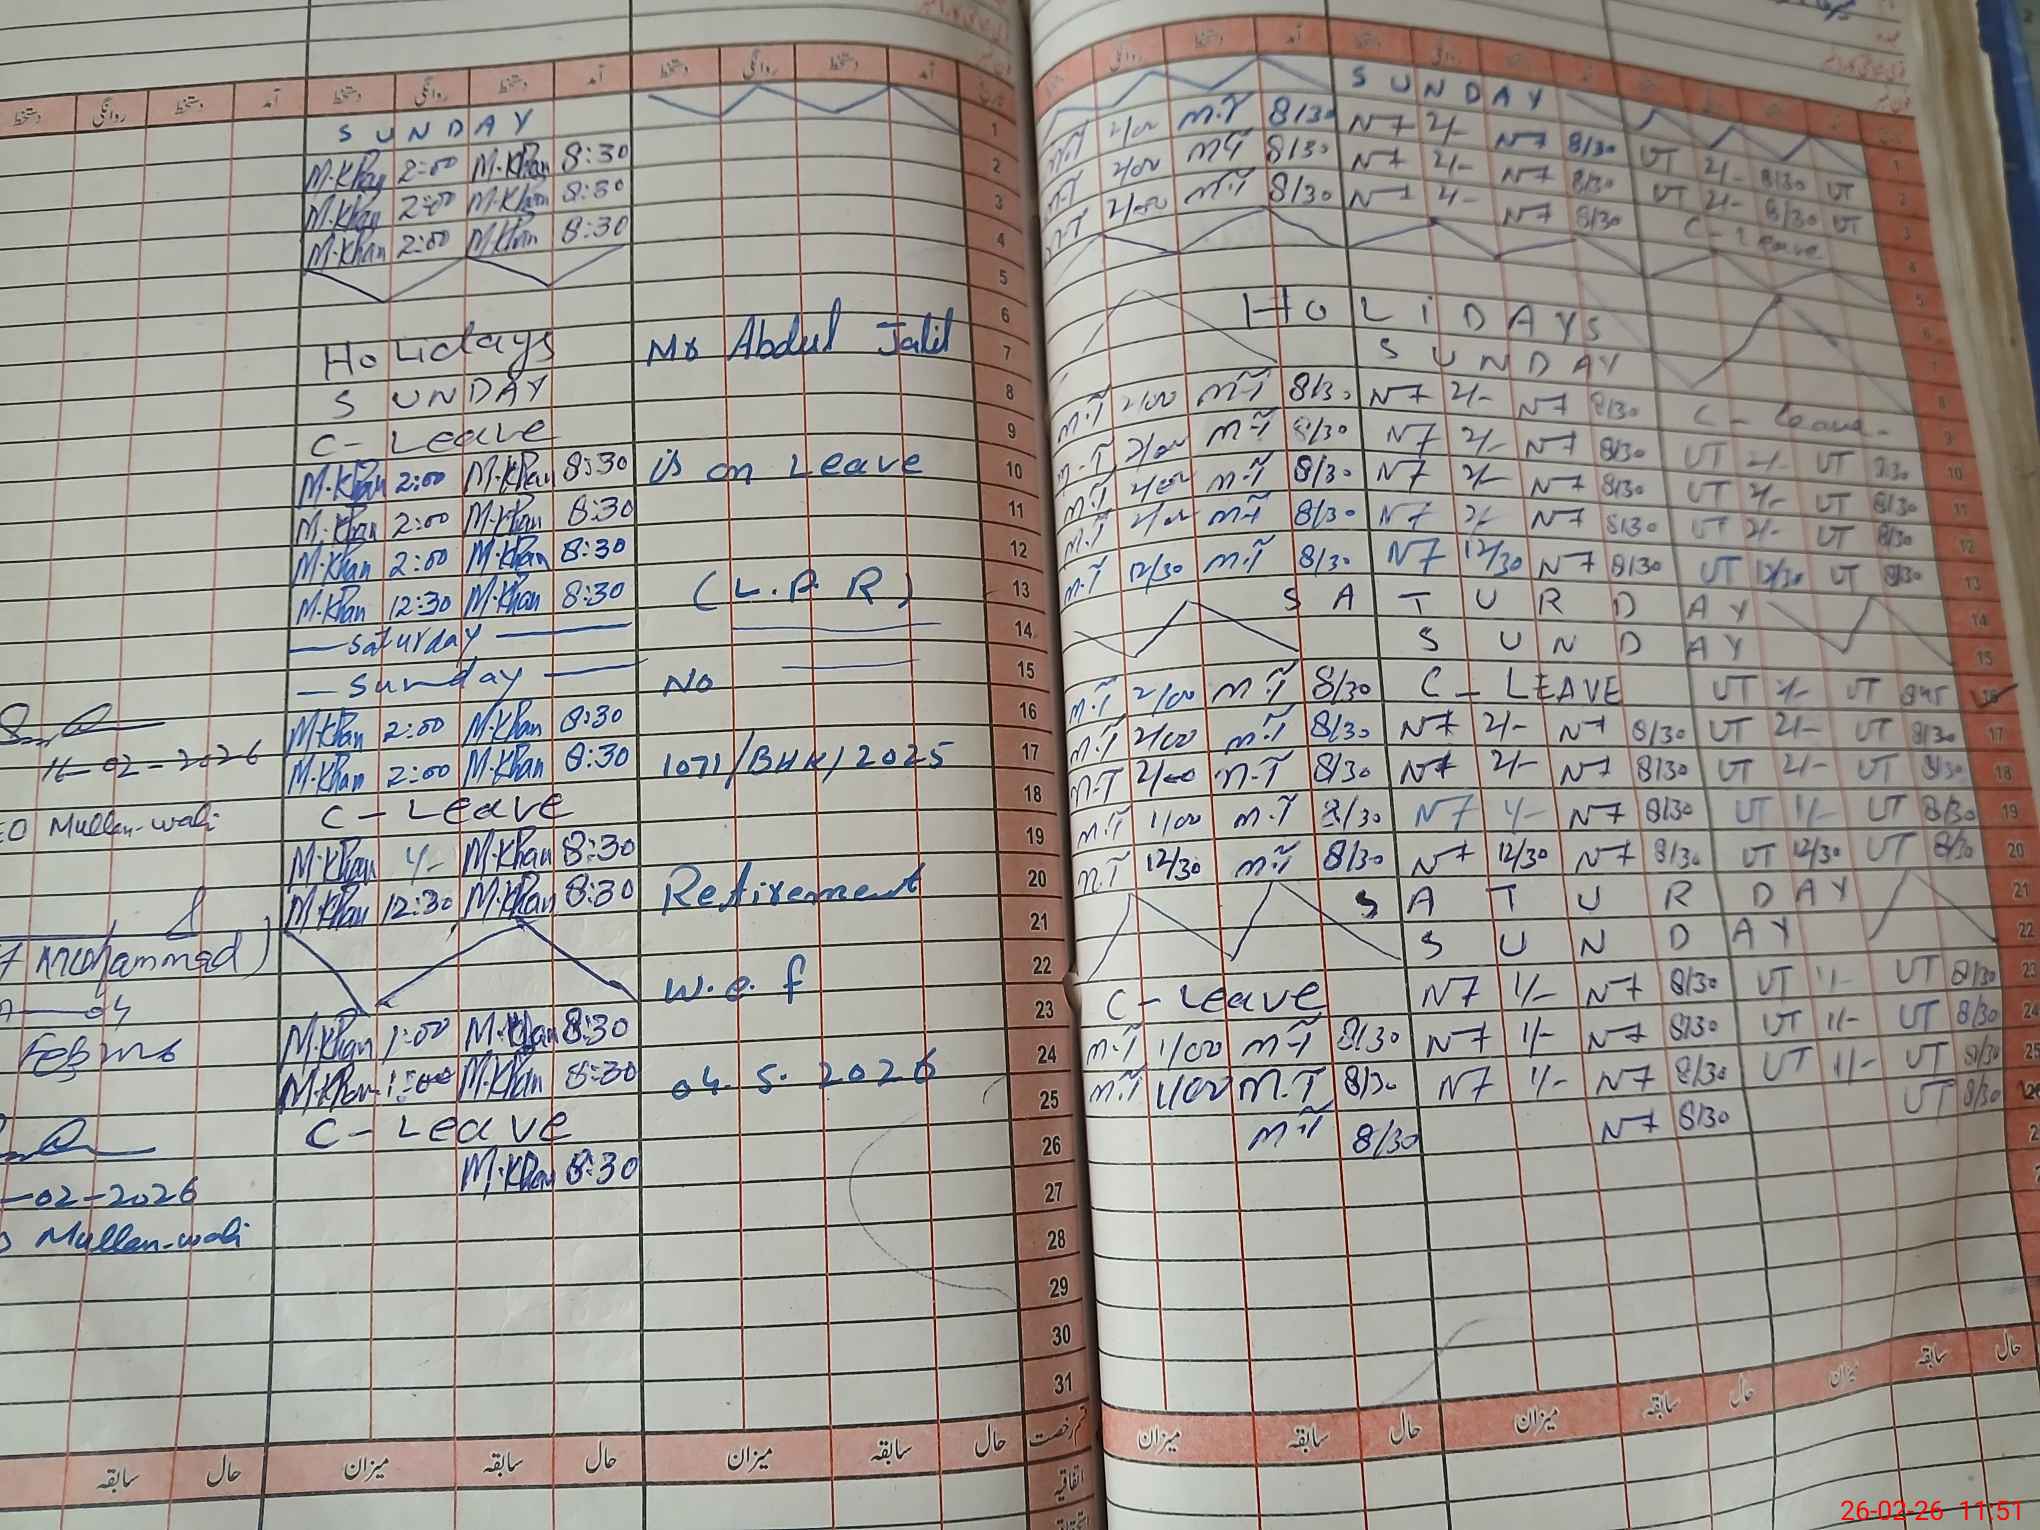 دستخط روانگی دستخط آمد دستخط روانگی دستخط آمد دستخط روانگی دستخط آمد تاریخ
SUNDAY
M.Khan 2:00 M.Khan 8:30 2
M.Khan 2:00 M.Khan 8:30 3
M.Khan 2:00 M.Khan 8:30 4
5
6
Holidays Mr Abdul Jalil 7
SUNDAY 8
C-Leave 9
M.Khan 2:00 M.Khan 8:30 is on Leave 10
M.Khan 2:00 M.Khan 8:30 11
M.Khan 2:00 M.Khan 8:30 12
M.Khan 12:30 M.Khan 8:30 (L.P.R) 13
Saturday 14
Sunday No 15
M.Khan 2:00 M.Khan 8:30 16
-02-2026 M.Khan 2:00 M.Khan 8:30 1071/BHK/2025 17
Mullan-wali C-Leave 18
M.Khan 1/- M.Khan 8:30 19
M.Khan 12:30 M.Khan 8:30 Retirement 20
21
Mohammad) 22
W.e.f
M.Khan 1:00 M.Khan 8:30 23
M.Khan 1:00 M.Khan 8:30 04.5.2026 24
25
C-Leave 26
M.Khan 8:30
-02-2026 27
Mullan-wali 28
29
30
31
سابقہ حال میزان سابقہ حال میزان سابقہ حال
اتفاقیہ
دستخط روانگی دستخط آمد دستخط روانگی
SUNDAY
M.T 2/00 M.T 8/30 N7 2/- N7 8/30 UT 2/- 8/30 UT
M.T 2/00 M.T 8/30 N7 2/- N7 8/30 UT 2/- 8/30 UT
M.T 2/00 M.T 8/30 N7 2/- N7 8/30 C-Leave
HOLIDAYS
SUNDAY
M.T 2/00 M.T 8/30 N7 2/- N7 8/30 C-Leave
M.T 2/00 M.T 8/30 N7 2/- N7 8/30 UT 2/- UT 8/30 10
M.T 2/00 M.T 8/30 N7 2/- N7 8/30 UT 2/- UT 8/30 11
M.T 2/00 M.T 8/30 N7 2/- N7 8/30 UT 2/- UT 8/30 12
M.T 12/30 M.T 8/30 N7 12/30 N7 8/30 UT 12/30 UT 8/30 13
SATURDAY 14
SUNDAY 15
M.T 2/00 M.T 8/30 C-LEAVE UT 2/- UT 8/45 16
M.T 2/00 M.T 8/30 N7 2/- N7 8/30 UT 2/- UT 8/30 17
M.T 2/00 M.T 8/30 N7 2/- N7 8/30 UT 2/- UT 8/30 18
M.T 1/00 M.T 8/30 N7 1/- N7 8/30 UT 1/- UT 8/30 19
M.T 12/30 M.T 8/30 N7 12/30 N7 8/30 UT 12/30 UT 8/30 20
SATURDAY 21
SUNDAY 22
C-Leave N7 1/- N7 8/30 UT 1/- UT 8/30 23
M.T 1/00 M.T 8/30 N7 1/- N7 8/30 UT 1/- UT 8/30 24
M.T 1/00 M.T 8/30 N7 1/- N7 8/30 UT 1/- UT 8/30 25
M.T 8/30 N7 8/30 UT 8/30 26
میزان سابقہ حال میزان سابقہ حال میزان سابقہ حال
26-02-26 11:51